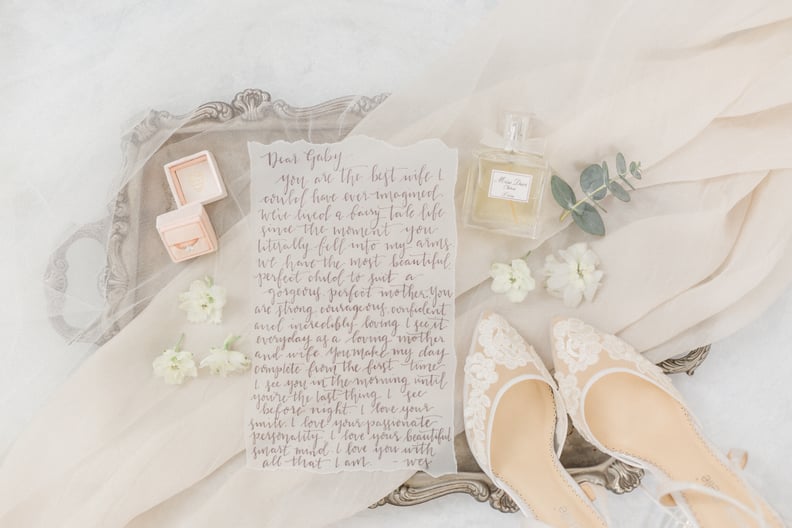 Dear Gaby
you are the best wife I
could have ever imagined.
We've lived a fairy tale life
since the moment you
literally fell into my arms.
We have the most beautiful
perfect child to suit a
gorgeous, perfect mother. You
are strong courageous, confident
and incredibly loving. I see it
everyday as a loving mother
and wife. You make my day
complete from the first time
I see you in the morning until
you're the last thing I see
before night. I love your
smile. I love your passionate
personality. I love your beautiful
smart mind. I love you with
all that I am. -wes
Miss Dior